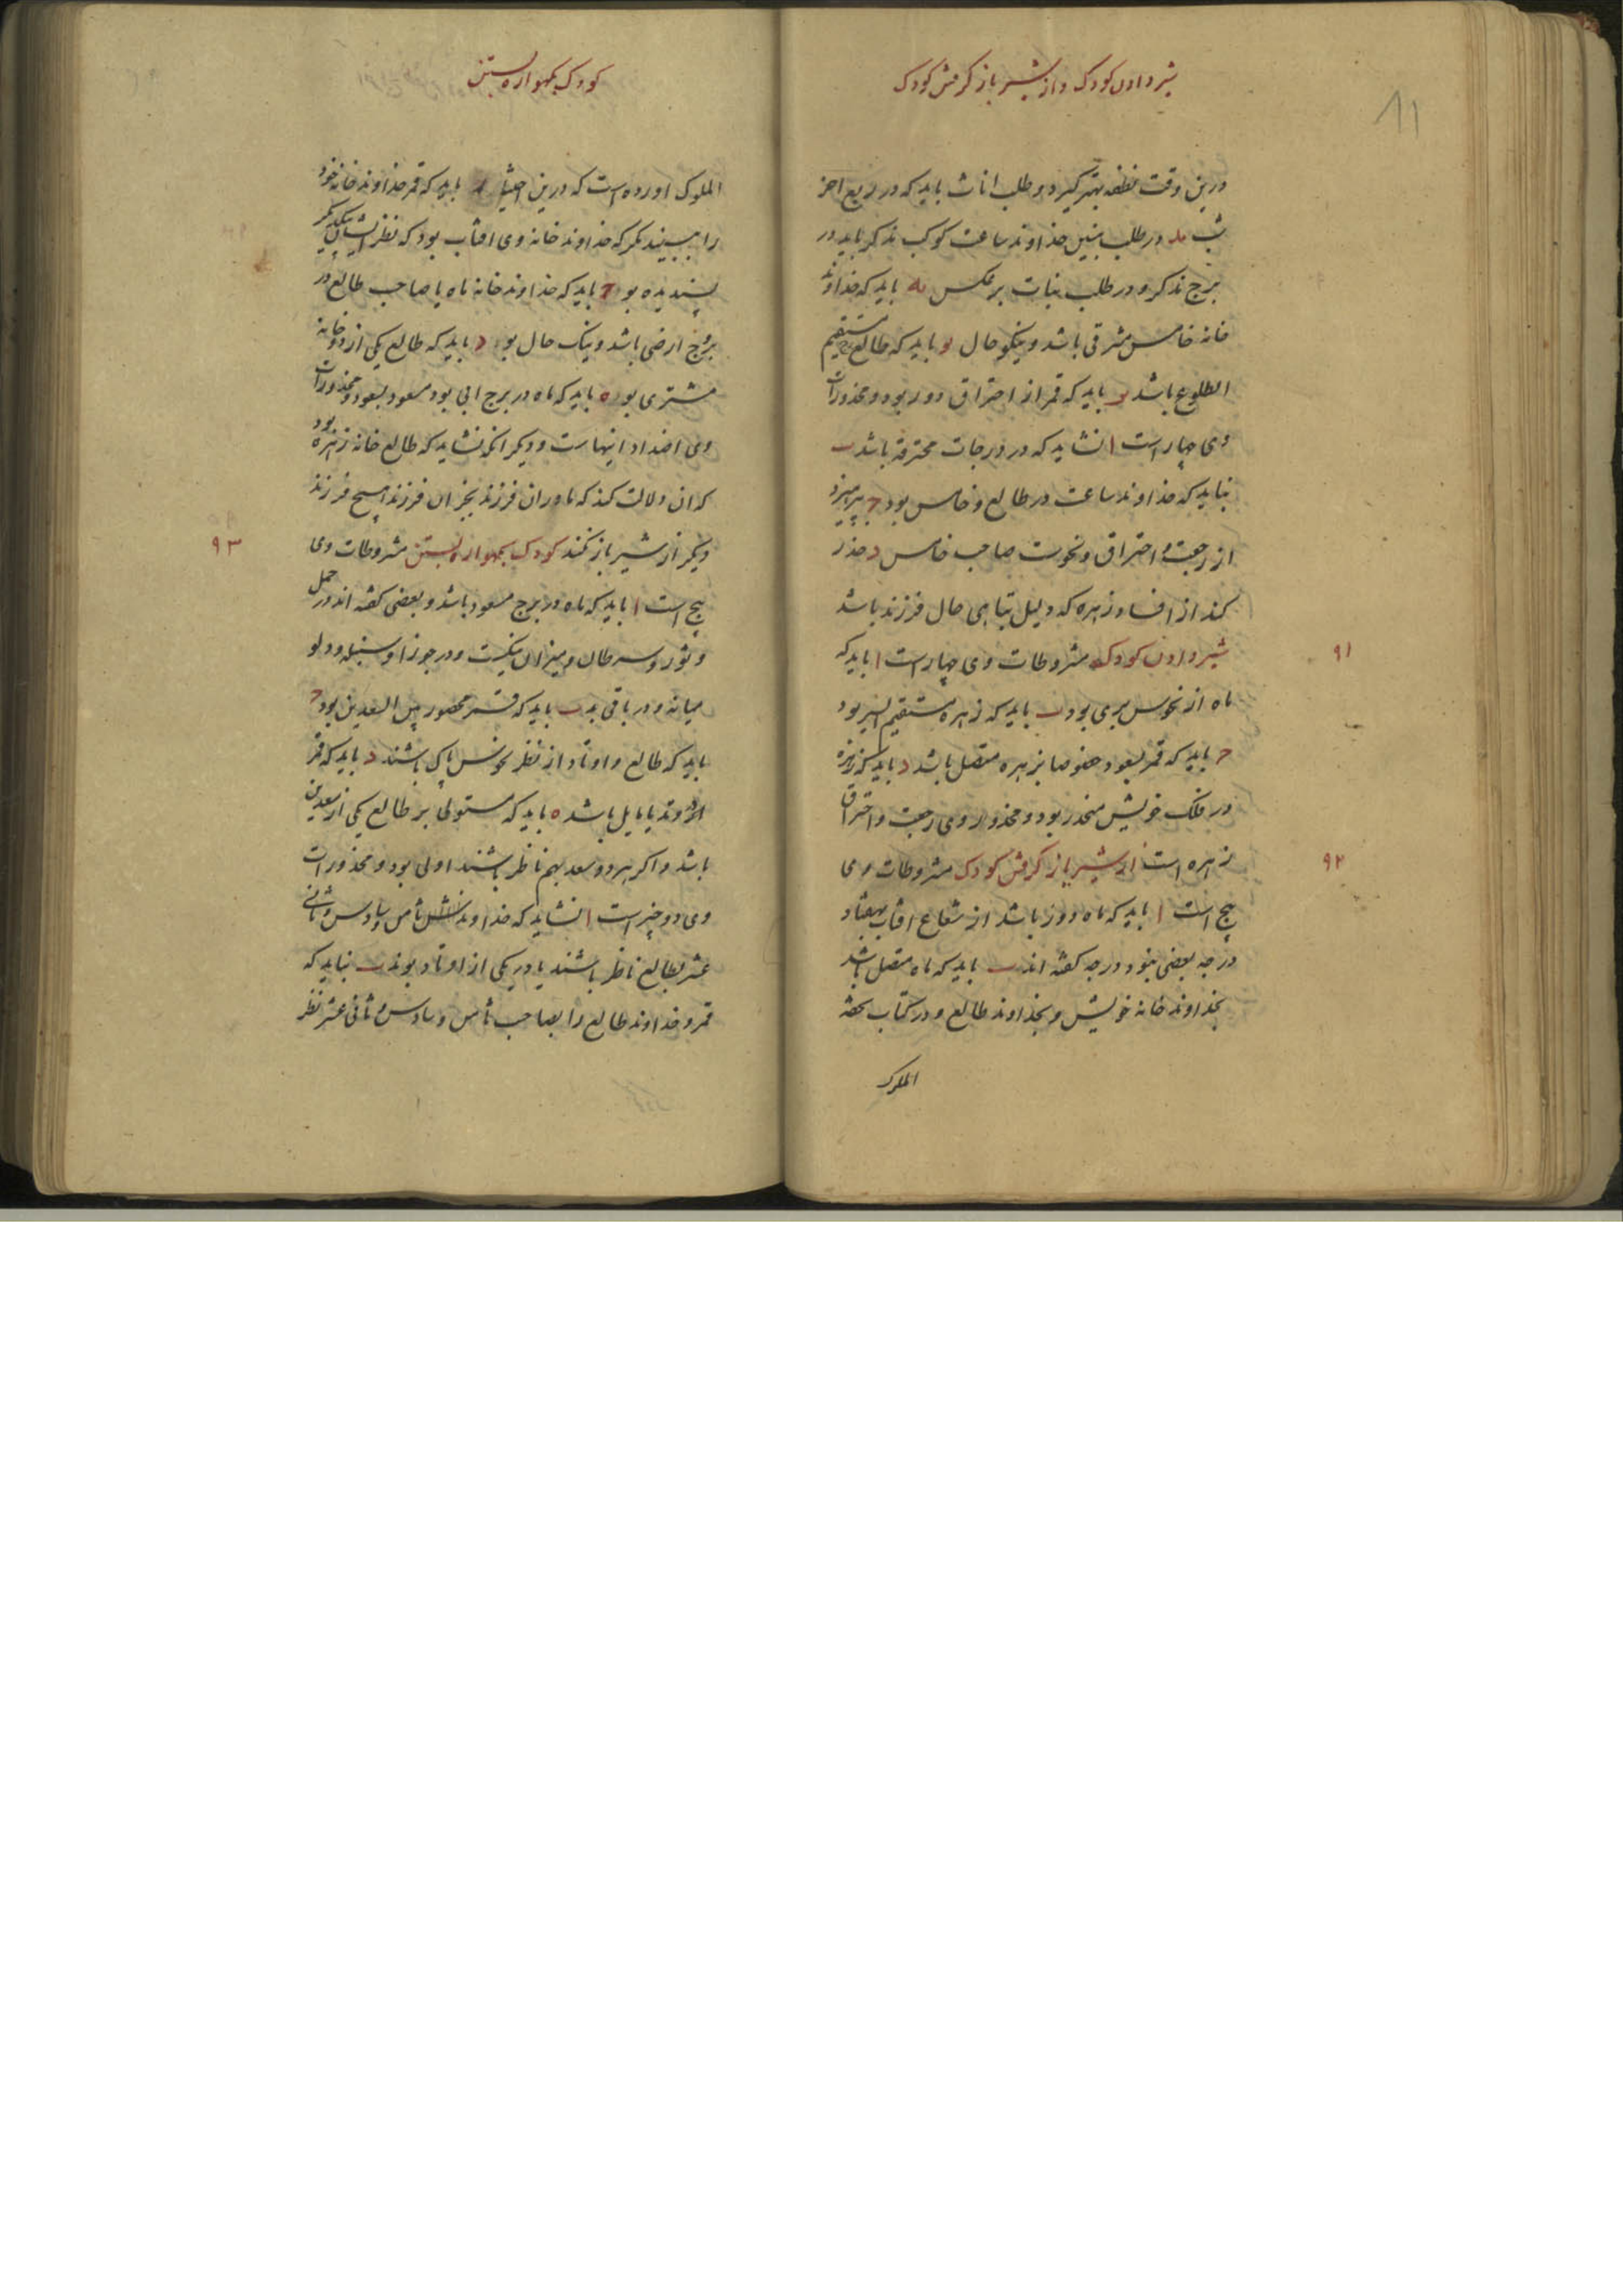 شیر دادن کودک و از شیر باز کرفتن کودک
11
درین وقت نطفه بهتر کیرد و طلب اناث باید که در ربع اخر
شب ید در طلب بنین خداوند ساعت کوکب مذکر باید در
برج مذکر و در طلب بنات بر عکس یه باید که خداوند
خانه خامس مشرقی باشد و نیکو حال یو باید که طالع مستقیم
الطلوع باشد یز باید که قمر از احتراق دور بود و محذورات
وی چهار است ا نشاید که در درجات محترقه باشد ب
نباید که خداوند ساعت در طالع و خامس بود ج بپرهیزد
از رجعت و احتراق و نحوست صاحب خامس د حذر
کند از افساد زهره که دلیل تباهی حال فرزند باشد
شیر دادن کودک مشروطات وی چهار است ا باید که
۹۱
ماه از نحوس بری بود ب باید که زهره مستقیم السیر بود
ج باید که قمر بسعود خصوصا بزهره متصل باشد د باید که زهره
در فلک خویش منحدر بود و محذور وی رجعت و احتراق
زهره است از شیر باز کرفتن کودک مشروطات وی
۹۲
پنج است ا باید که ماه دور باشد از شعاع افتاب بهفتاد
درجه بعضی بنود درجه کفته اند ب باید که ماه متصل باشد
بخداوند خانه خویش و بخداوند طالع و در کتاب تحفه
الملوک
کودک بکهواره بستن
الملوک اورده است که درین اختیار باید که قمر خداوند خانه خود
را ببیند مکر که خداوند خانه وی افتاب بود که نظر ایشان بیکدیکر
پسندیده بود ج باید که خداوند خانه ماه با صاحب طالع در
بروج ارضی باشد و نیک حال بود د باید که طالع یکی از دو خانه
مشتری بود ه باید که ماه در برج ابی بود مسعود بسعود و محذورات
وی اضداد اینهاست و دیکر انکه نشاید که طالع خانه زهره بود
که ان دلالت کند که مادر ان فرزند بجز ان فرزند هیچ فرزند
دیکر از شیر باز نکند کودک بکهواره بستن مشروطات وی
۹۳
پنج است ا باید که ماه در برج مسعود باشد و بعضی کفته اند در حمل
و ثور و سرطان و میزان نیکست و در جوزا و سنبله و دلو
میانه و در باقی بد ب باید که قمر محصور بین السعدین بود ج
باید که طالع و اوتاد از نظر نحوس پاک باشند د باید که قمر
در وتد یا مایل باشد ه باید که مستولی بر طالع یکی از سعدین
باشد و اکر هر دو سعد بهم ناظر باشند اولی بود و محذورات
وی دو چیز است ا نشاید که خداوند ثامن و سادس و ثانی
عشر بطالع ناظر باشند یا در یکی از اوتاد بوند ب نباید که
قمر و خداوند طالع را بصاحب ثامن و سادس و ثانی عشر نظر